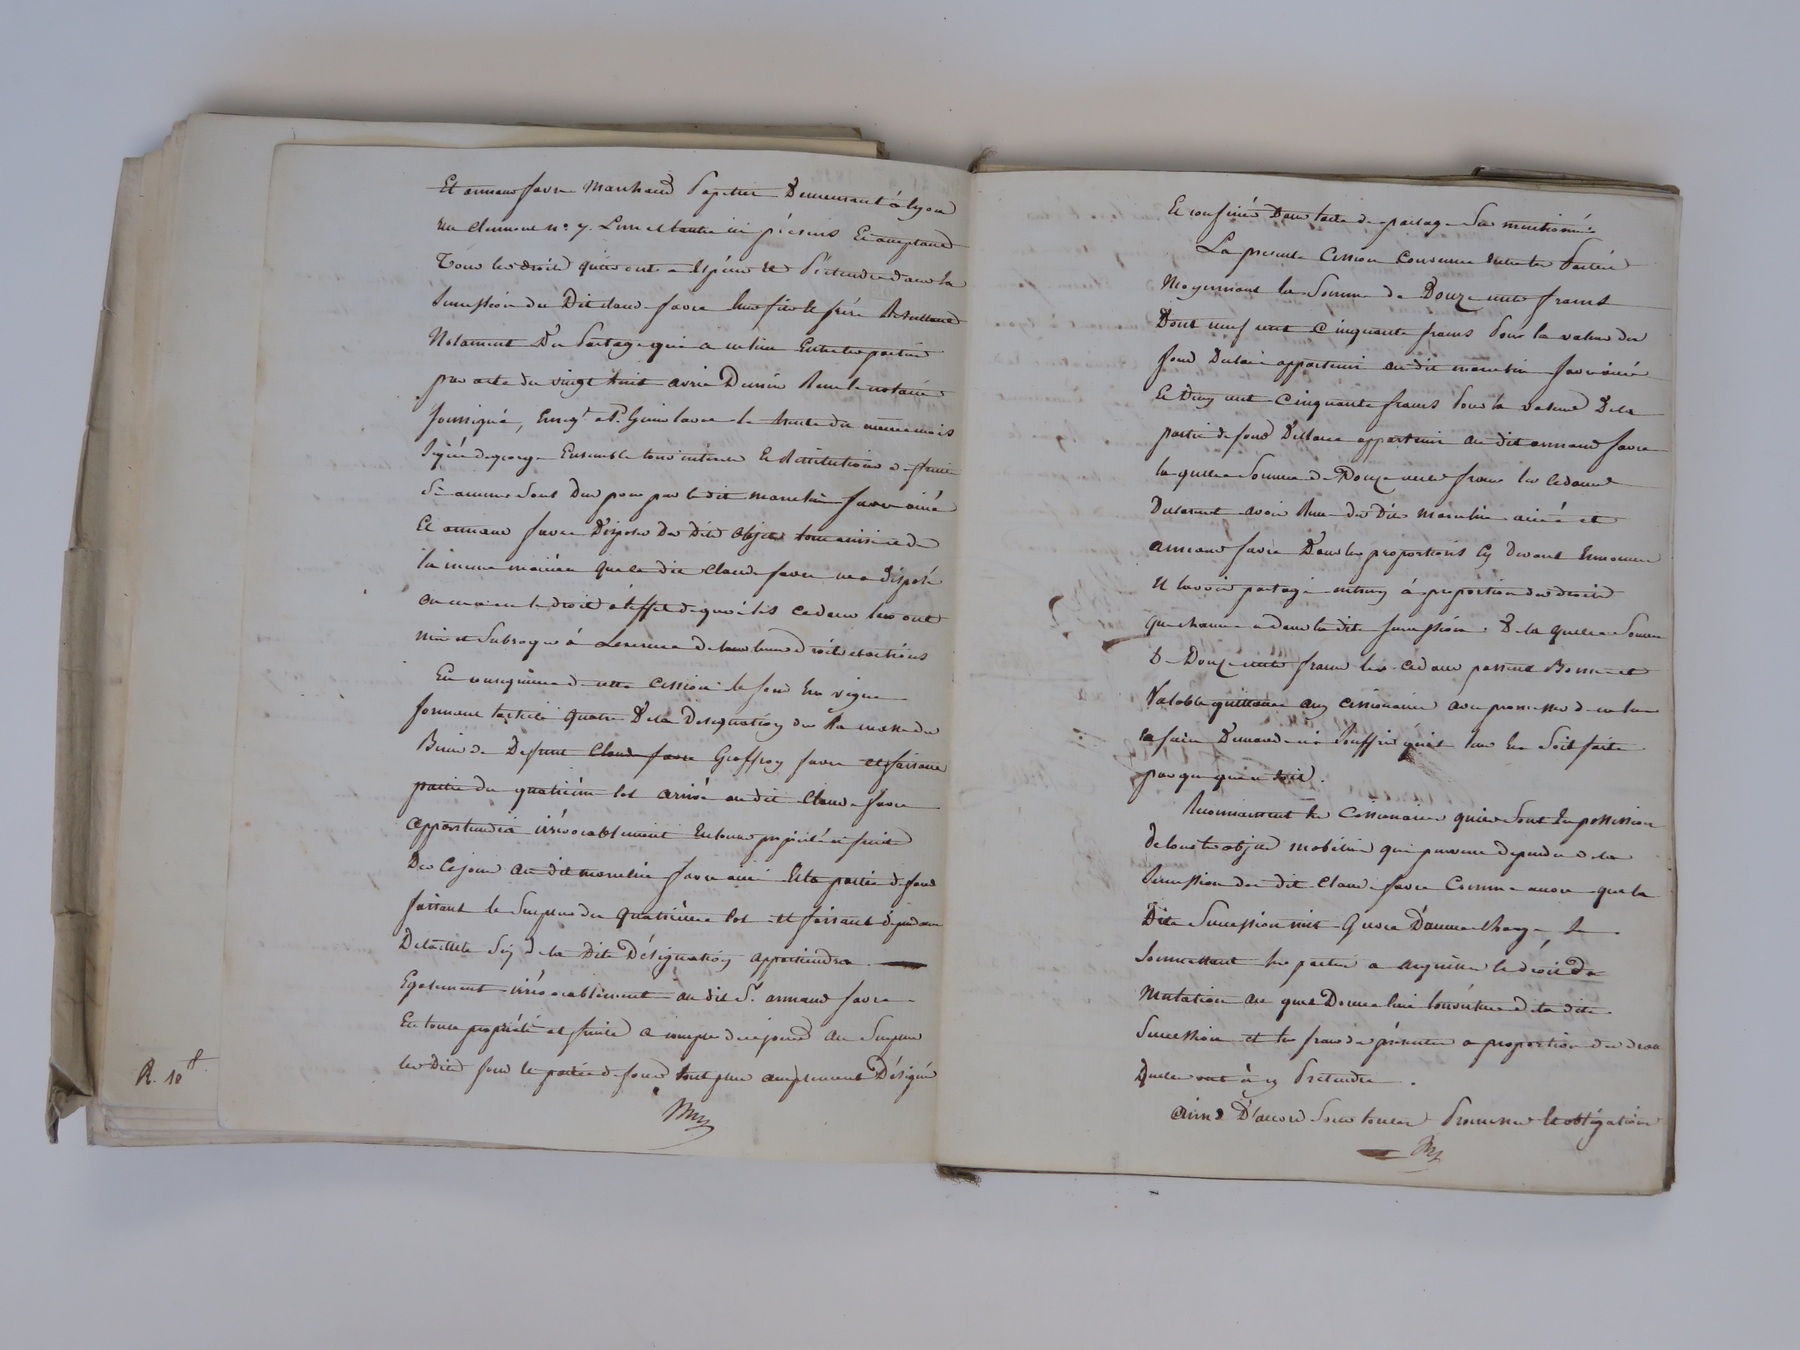 Et armand favre Marchand Papetier Demeurant à lyon
rue Clermont n° 7. L'un et l'autre ici présens Et acceptant
Tous les droits qu'ils ont a Espérer et Prétendre dans la
Succession du Dit claude favre leur fils & frère Résultant
Notament Du Partage qui a eu lieu Entre les parties
par acte du vingt huit avril Dernier Reçu le notaire
soussigné, Enreg.t à St. Genis laval le trente du même mois
Signé degeorge Ensemble tous intérêts Et Restitutions de fruits
Si aucuns sont Dus pour par le dit marcelin favre ainé
Et armand favre Disposer Des Dits Objets tout ainsi et de
la même manière que le dit Claude favre en a disposé
ou en a eu le droit à l'effet de quoi les cédans les ont
mis et Subrogés à L'exercice de tous leurs droits et actions
En conséquence de cette Cession le fond En vigne
formant l'article quatre De la Designation de La masse des
Biens de Defunt Geoffroy favre et faisant
partie du quatrième lot arrivé au dit Claude favre
appartiendra irrévocablement En toute propriété et fruits
Dès Ce jour au dit marcelin favre ainé Et la partie de fond
faisant le Surplus du quatrième lot et faisant
De la dite Désignation appartiendra
Egalement irrévocablement au dit Sr. armand favre
En toute propriété et fruits a compter de ce jour au Surplus
les Dits fond & partie de fond tout plus amplement Désigné
R. 10 f.
Et confinés Dans l'acte de partage Sus mentionné
La présente Cession Convenue entre les Parties
Moyennant la Somme de Douze cents francs
Dont neuf cent cinquante francs Pour la valeur du
fond Devant appartenir au dit marcelin favre ainé
Et Deux cent Cinquante francs Pour la valeur De la
partie de fond Devant appartenir au dit armand favre
laquelle Somme de Douze cents francs les Cédants
Declarent avoir Reçu des Dits marcelin ainé et
armand favre Dans les proportions Cy Devant Enoncées
Et l'avoir partagé entr'eux à proportion des droits
que chacun a dans la dite Succession. De la quelle Somme
De Douze cents francs les cédans passent Bonne et
Valable quittance aux Cessionaires avec promesse de ne leur
en faire Demande ni Souffrir qu'il leur En Soit faite
par qui que ce soit.
Reconnaissent les Cessionaires qu'ils Sont En possession
de tous les objets mobiliers qui peuvent dependre de la
Succession du dit Claude favre Comme aussi que la
Dite Succession n'est Grevée D'aucune charge Se
Soumettant les parties a acquitter le droit de
Mutation au quel Donne lieu l'ouverture de la dite
Succession et les frais des présentes a proportion des droits
Qu'elles ont à y Prétendre.
Ainsi D'accord Sous toutes Promesses Et obligations